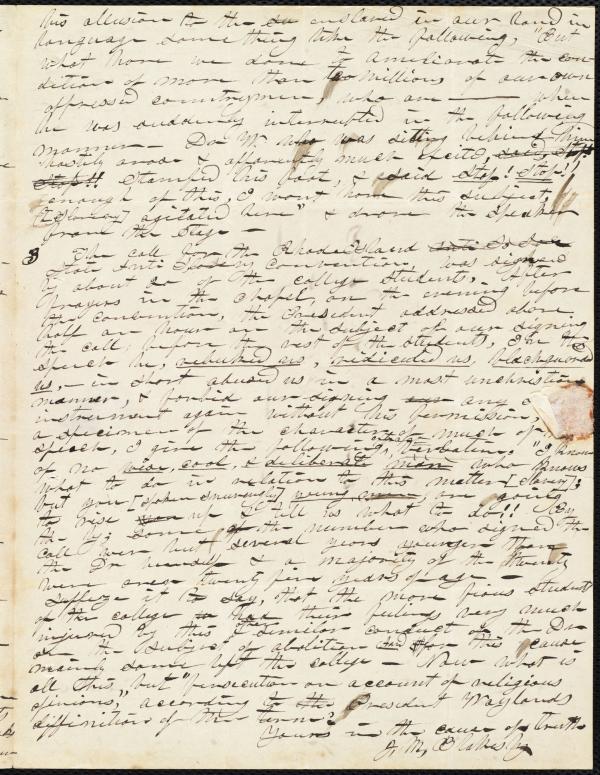 his allusion to the the su enslaved in our land in
language something like the following, "But
what have we done to ameliorate the con-
dition of more than two millions of our own
oppressed countrymen, who are — when
he was suddenly interrupted in the following
manner — Dr W. who was sitting behind him
hastily arose & apparently much excited said, Stop!!
Stop!! Stamped his foot, & said Stop! Stop!!
enough of this, I wont have this subject,
[Slavery] agitated here" & drove the speaker
from the stage —
3 The call for the Rhode Island
State Anti Slavery Convention was signed
by about 20 of the college students. After
prayers in the chapel, on the evening before
the convention, the President addressed above
half an hour on the subject of our signing
the call, before the rest of the students, In this
speech he, rebuked us, ridiculed us, blackguarded
us, — in short abused us in a most unchristian
manner, & forbid our signing any
instrument again without his permission,
a specimen of the character of much of
speech, I give the following verbatim. "I know
of no wise, cool, & deliberate man who knows
what to do in relation to this matter [slavery];
but you [spoken sneeringly] young men, are going
to rise up & tell us what to do!!
some of the number who signed the
call were but several years younger than
the Dr himself & a majority of the twenty
were over twenty five years of age —
Suffice it to say, that the more pious students
of the college had their feelings very much
injured by this & similar conduct of the Dr
on the subject of abolition & for this cause
mainly some left the college — Now what is
all this, but "Persecution on account of religious
opinions," according to the President Waylands
diffinition of the term?
Yours in the cause of truth
J. M. Blakesly